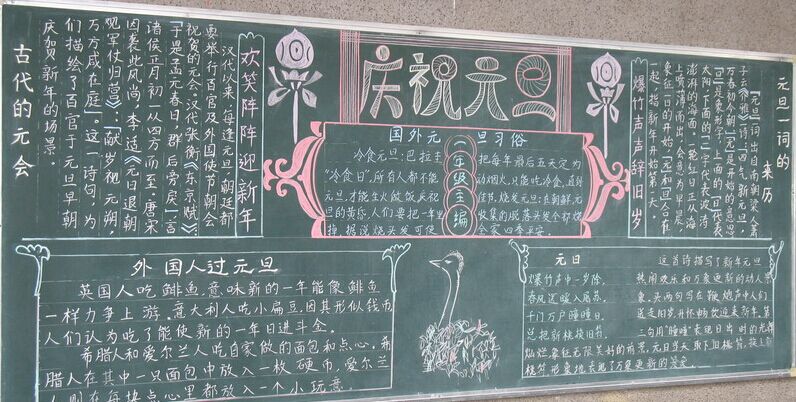 庆祝元旦
古代的元会
欢笑阵阵迎新年
汉代以来,每逢元旦,朝廷都
要举行百官及外国使节朝会
祝贺的元会。汉代张衡《东京赋》:
“于是孟元春日,群后旁戾”,言
诸侯正月初一从四方而至,唐朵
因袭此风尚,李适《元日退朝
观军仗归营》:“献岁视元朔,
万方咸在庭”。这一诗句,为
们描绘了百官于元旦早朝
庆贺新年的场景。
国外元旦习俗
一年级主编
冷食元旦:巴拉圭
“冷食日”,所有人都不能
元旦,才能生火做饭庆祝
旦的黄昏,人们要把一年里
掉,据说烧头发可使
把每年最后五天定为
动烟火,只能吃冷食,直到
佳节。烧发元旦:在朝鲜,元
收集的脱落头发全部烧
全家四季平安。
爆竹声声辞旧岁
元旦一词的
来历
“元旦”一词出自南朝梁人萧
子云《介雅》诗:“四气新元旦,
万春初今朝”“元”是开始的意思
“旦”是象形字,上面的“日”代表
太阳,下面的“一”字代表波涛
澎湃的海面,一轮红日正从海
上喷薄而出,会意为早晨,
象征一日的开始。“元”“旦”合在
一起,指新年开始第一天。
外国人过元旦
英国人吃鲱鱼,意味新的一年能像鲱鱼
一样力争上游,意大利人吃小扁豆,因其形似钱币
人们认为吃了能使新的一年日进斗金。
希腊人和爱尔兰人吃自家做的面包和点心。希
腊人在其中一只面包中放入一枚硬币,爱尔兰
人则在每块点心里都放入一个小玩意。
元日
爆竹声中一岁除,
春风送暖入屠苏。
千门万户曈曈日,
总把新桃换旧符。
这首诗描写了新年元旦
热闹欢乐和万象更新的动人景
象,头两句写在鞭炮声中人们
送走旧岁,开怀畅饮迎来新年,第
三句用“曈曈”表现日出时的光辉
灿烂,象征无限美好的前景,元旦当天取下旧桃符,换上新
桃符形象地表现了万象更新的景象